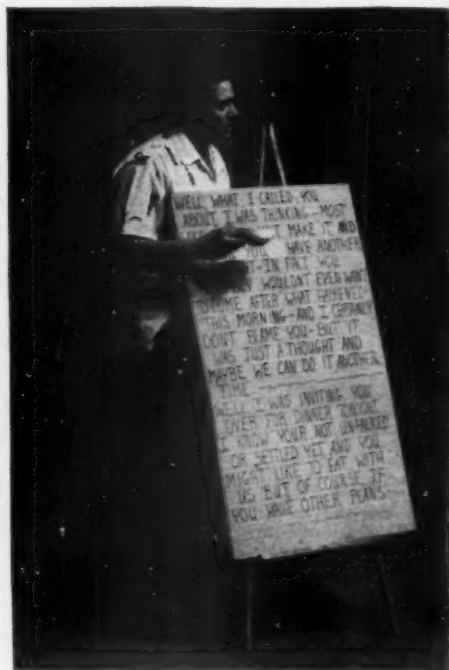 WELL, WHAT I CALLED YOU
ABOUT I WAS THINKING—MOST
I MAKE IT AND
YOU HAVE ANOTHER
IN FACT YOU
WOULDNT EVEN WANT
TO COME AFTER WHAT HAPPENED
THIS MORNING—AND I CERTAINLY
DON'T BLAME YOU—BUT IT
WAS JUST A THOUGHT AND
MAYBE WE CAN DO IT ANOTHER
TIME
WELL I WAS INVITING YOU
OVER FOR DINNER TONIGHT
I KNOW YOUR NOT UNPACKED
OR SETTLED YET AND YOU
MIGHT LIKE TO EAT WITH
US BUT OF COURSE IF
YOU HAVE OTHER PLANS